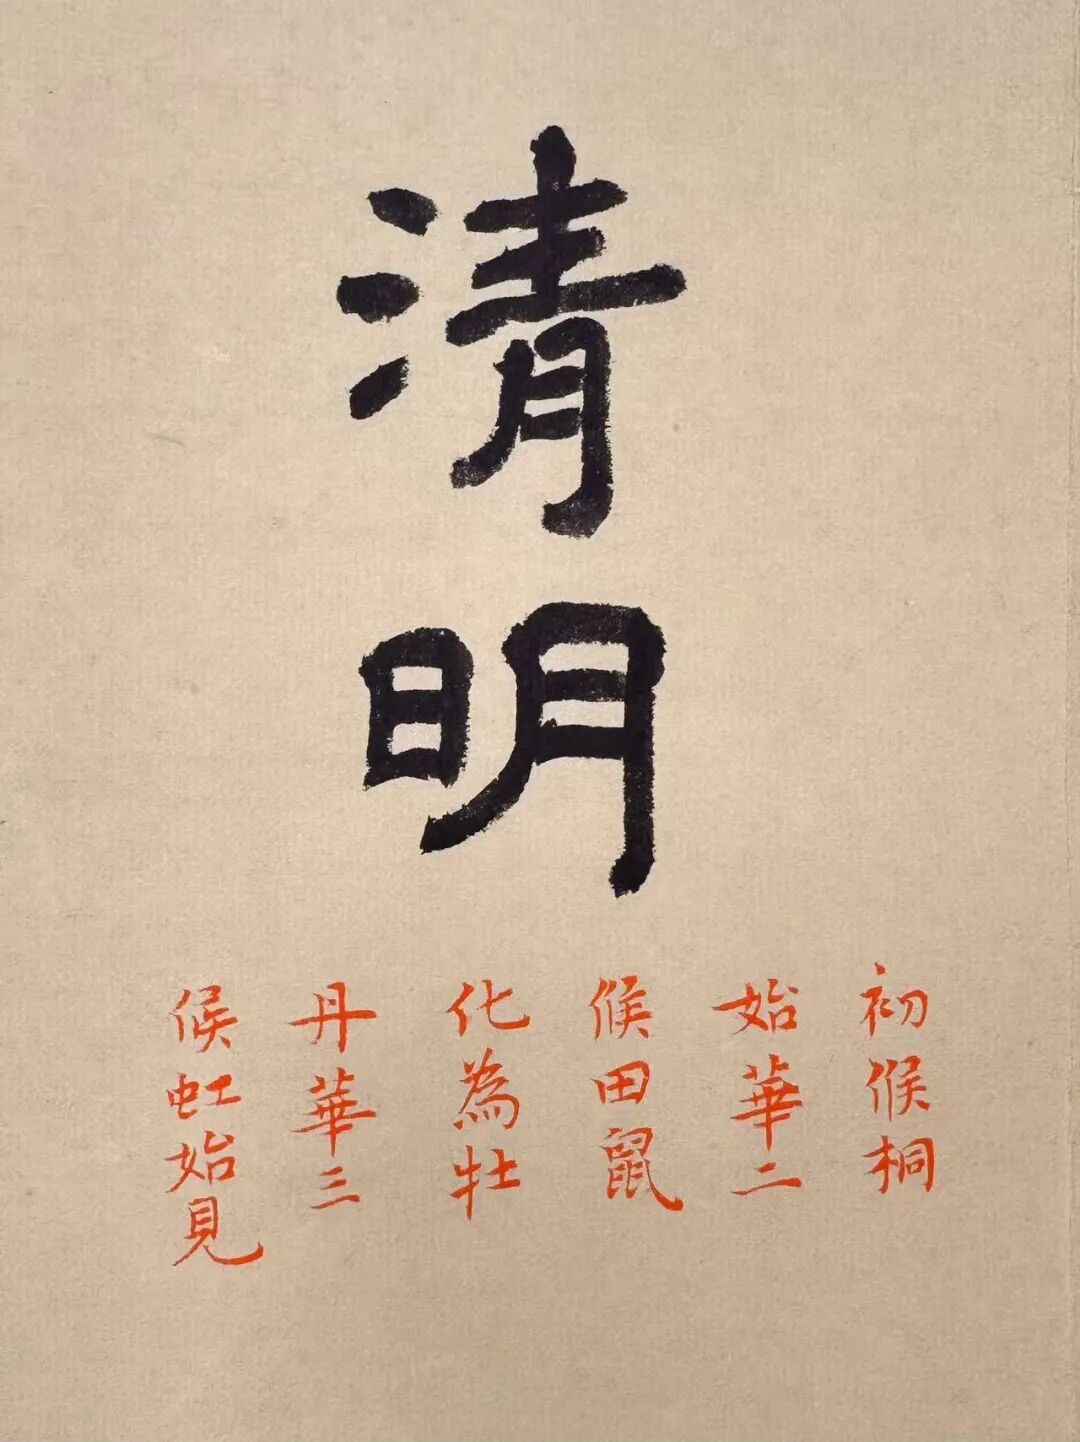 清明
初候桐
始華二
候田鼠
化為牡
丹華三
候虹始見